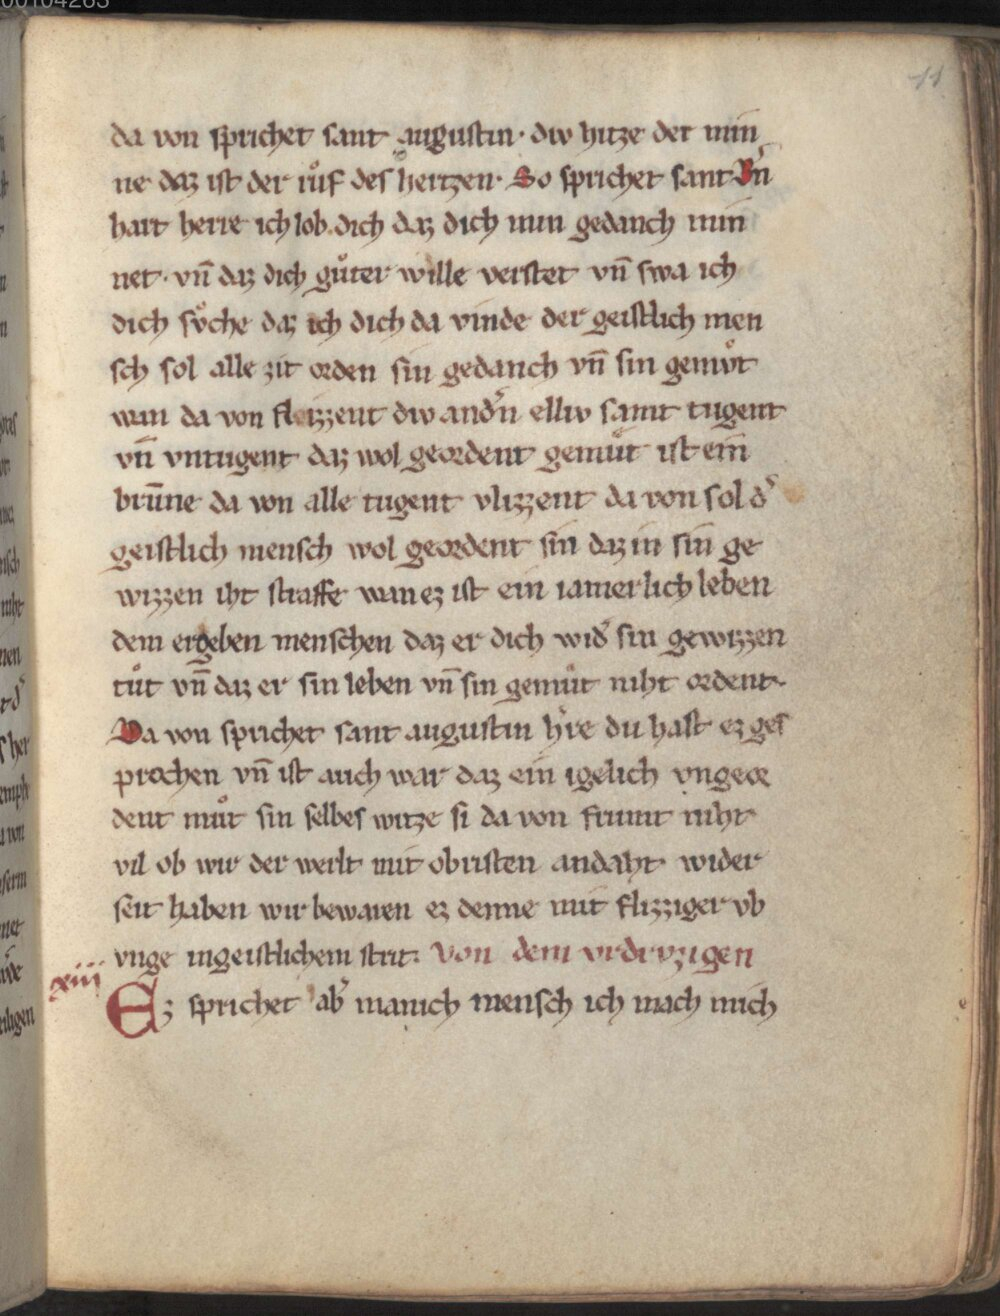 00104263
11
da von sprichet sant augustin· diw hitze der min
ne daz ist der růf des hertzen· So sprichet sant Bn̄
hart herre ich lob dich daz dich min gedanch min
net· vn̄ daz dich gůter wille verstet vn̄ swa ich
dich sv̊che daz ich dich da vinde der geistlich men
sch sol alle zit orden sin gedanch vn̄ sin gemv̊t
wan da von fleizzent diw andern elliv samt tugent
vn̄ vntugent daz wol geordent gemůt ist ein
brūne da von alle tugent vlizzent da von sol d͛
geistlich mensch wol geordent sin daz in sin ge
wizzen iht straffe wan ez ist ein iamerlich leben
dem ergeben menschen daz er dich wid͛ sin gewizzen
tůt vn̄ daz er sin leben vn̄ sin gemůt niht ordent·
Da von sprichet sant augustin h͛re du hast ez ges
prochen vn̄ ist auch war daz ein igelich vngeor
dent můt sin selbes witze si da von frumt niht
vil ob wir der werlt mit obristen andaht wider
seit haben wir bewaren ez denne mit flizziger vb
vnge ingeistlichem strit· Von dem vrdrvzigen
xiii
Ez sprichet ab͛ manich mensch ich mach mich